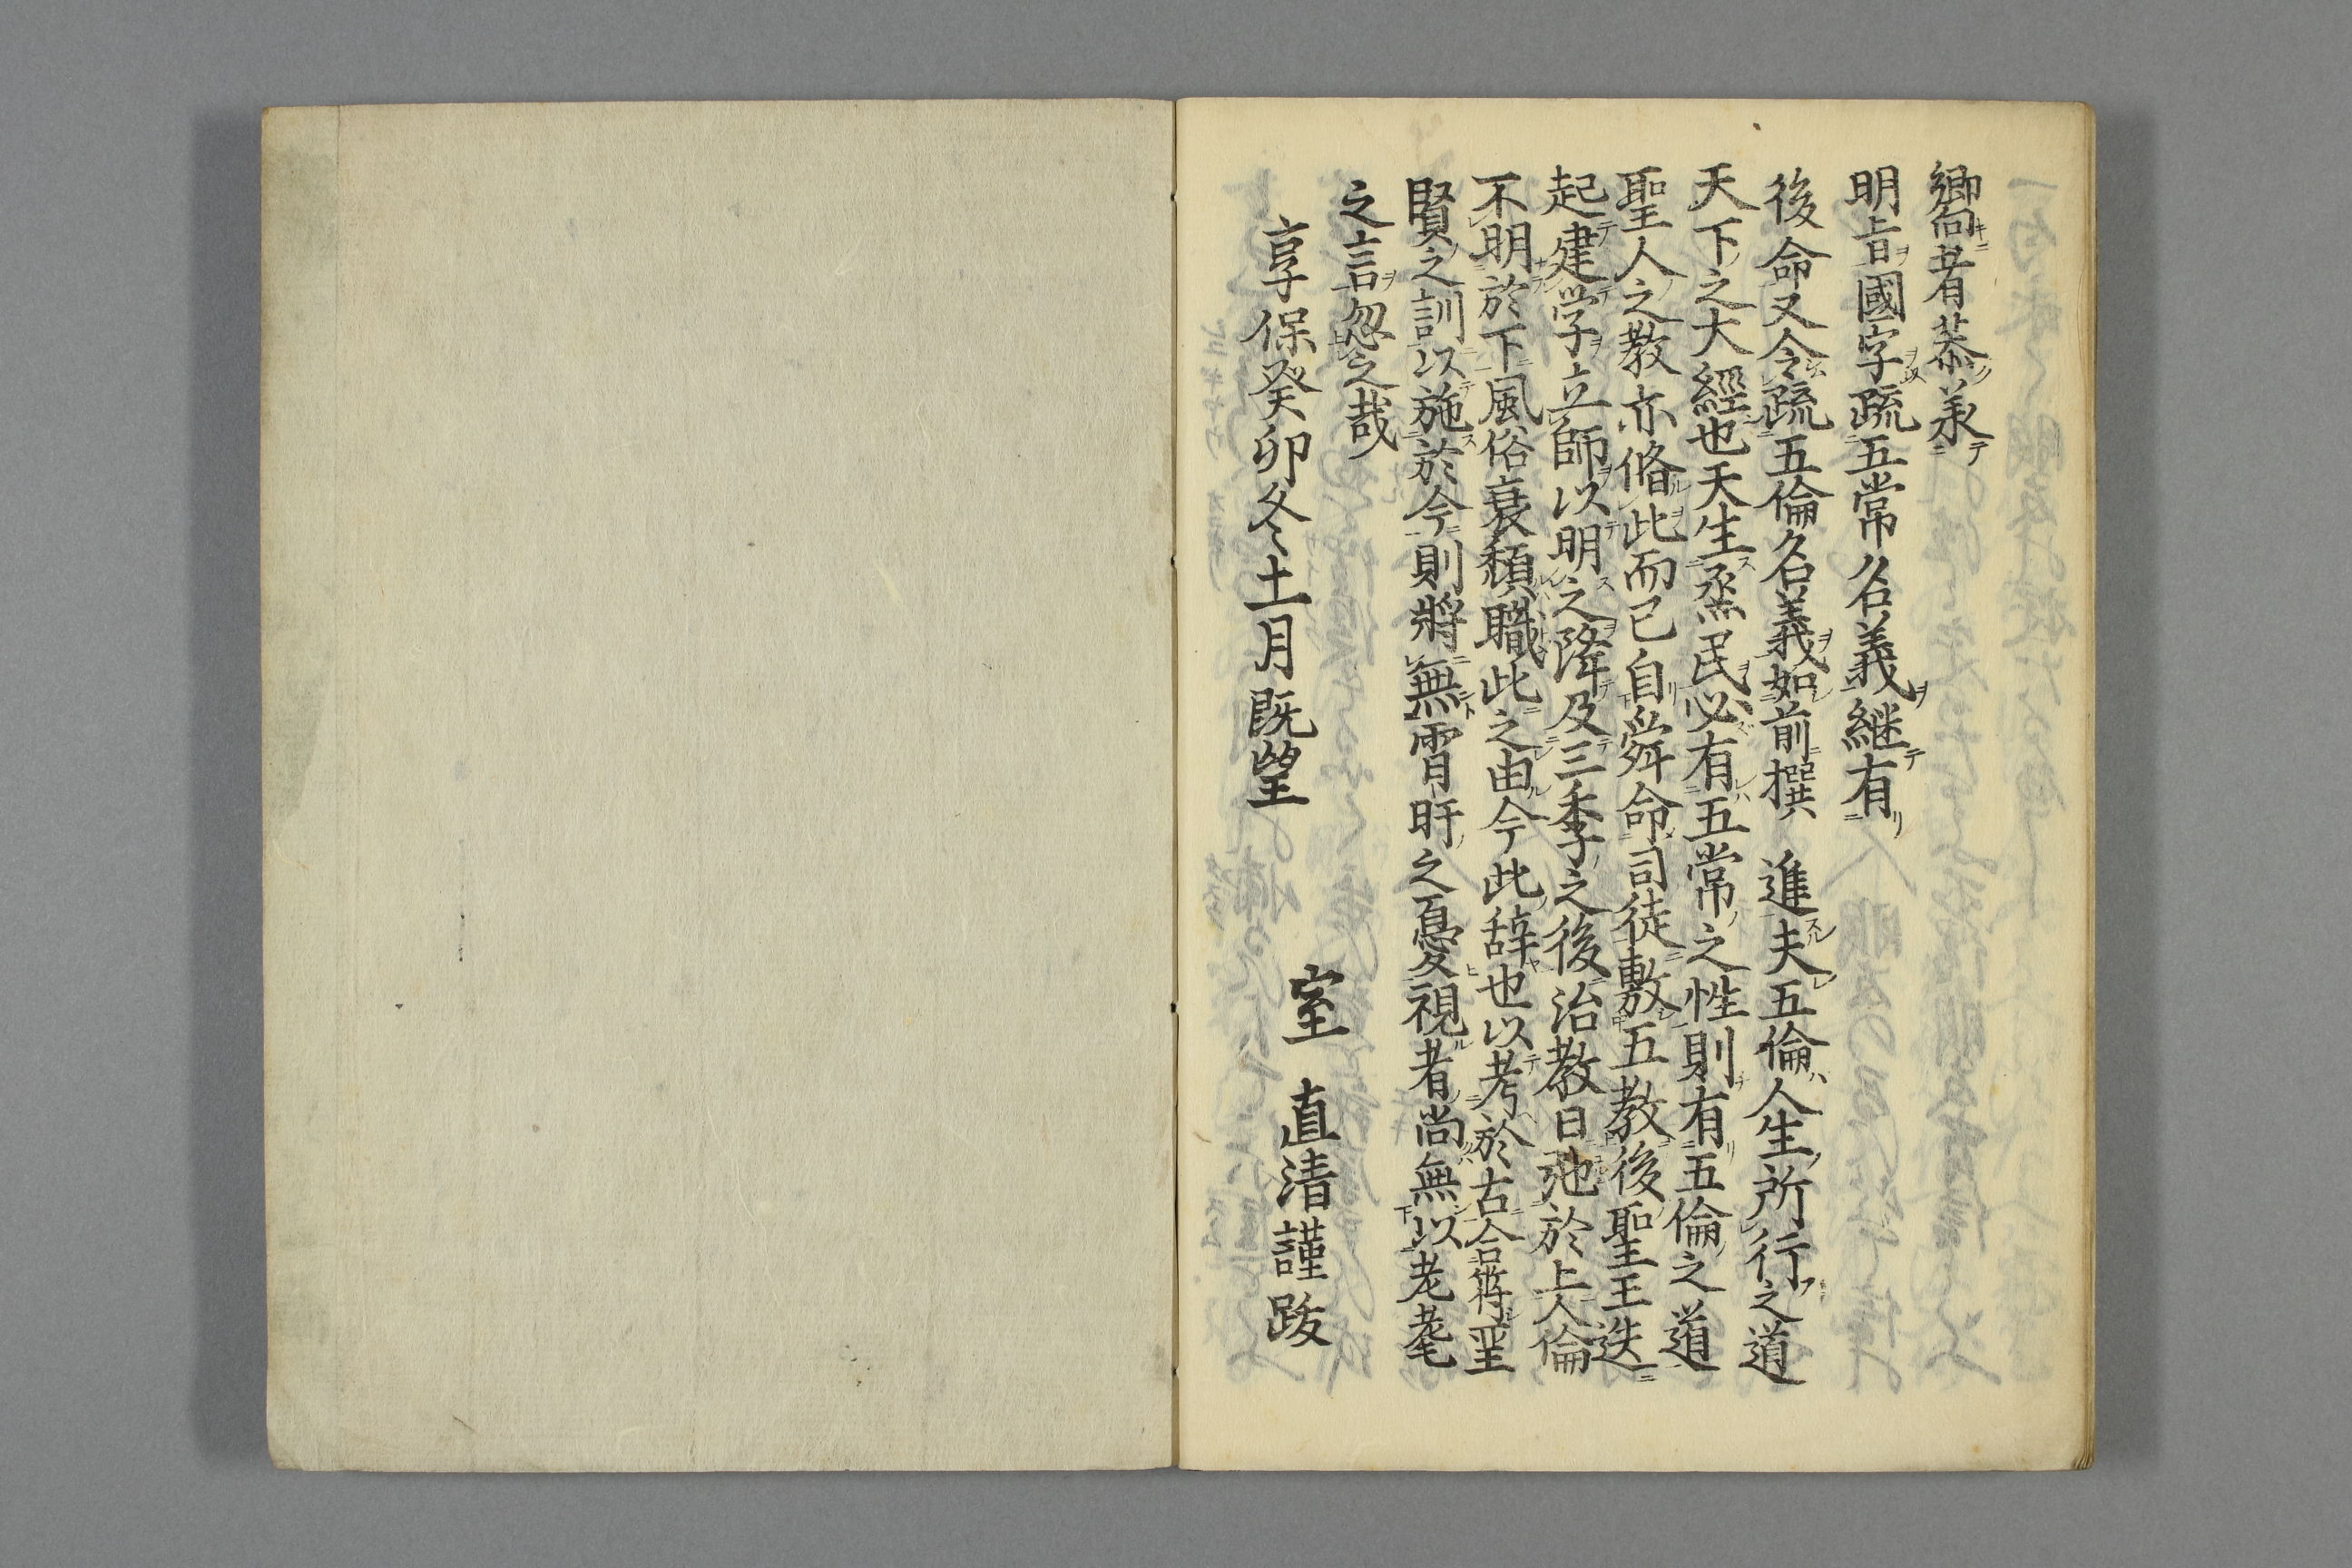 嚮者恭羕
明旨國字疏五常名義継有
後命又令疏五倫名義如前撰　進夫五倫人生所行之道
天下之大經也天生烝民必有五常之性則有五倫之道
聖人之教亦脩此而已自舜命司徒敷五教後聖王迭
起建学立師以明之降及三季之後治教日弛於上人倫
不明於下風俗衰頽職此之由今此辞也以考於古合聖
賢之訓以施於今則將無宵旰之憂視者尚無以老耄
之言忽之哉
享保癸卯冬十一月既望
室　直清謹跋